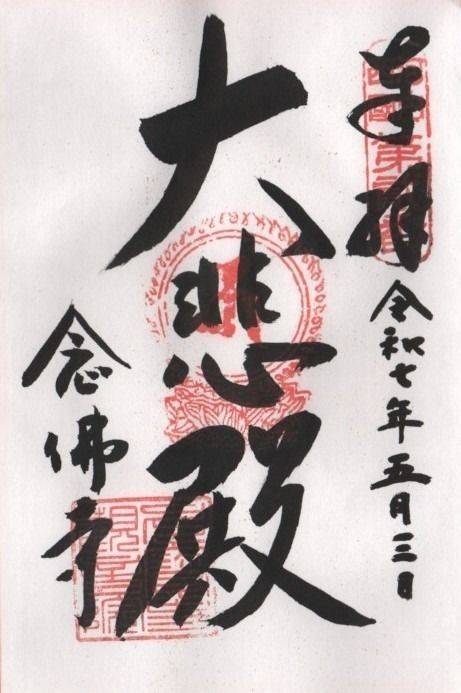 奉拝
令和七年五月三日
大悲殿
念佛寺